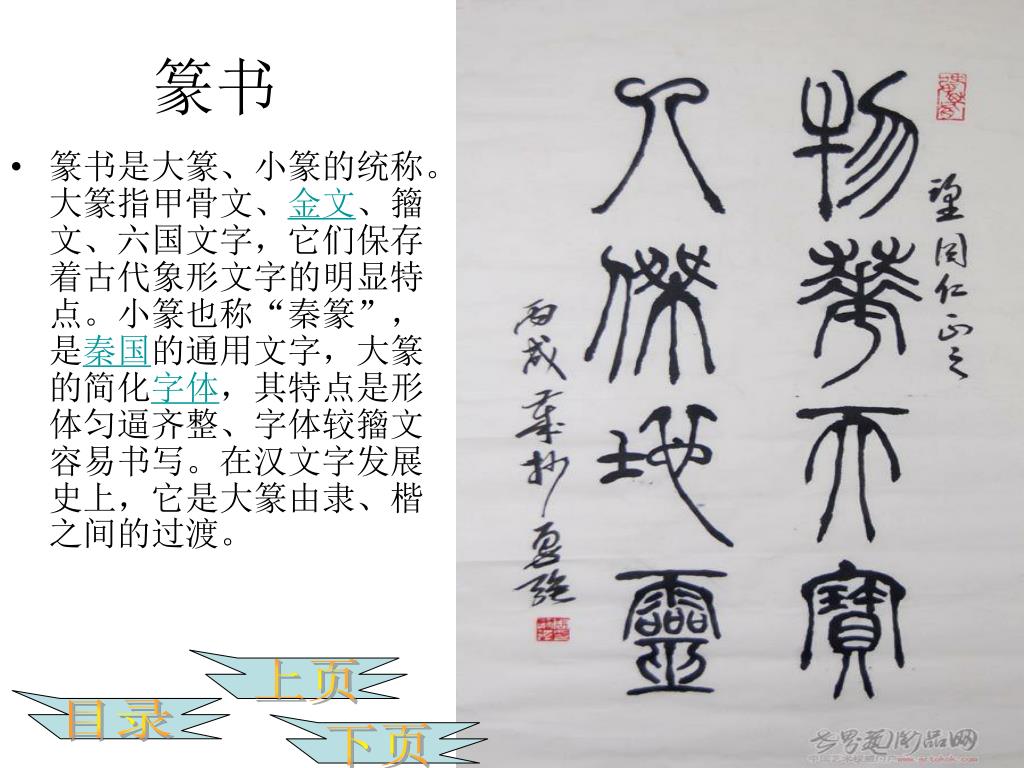 篆书
• 篆书是大篆、小篆的统称。
大篆指甲骨文、金文、籀
文、六国文字，它们保存
着古代象形文字的明显特
点。小篆也称“秦篆”，
是秦国的通用文字，大篆
的简化字体，其特点是形
体匀逼齐整、字体较籀文
容易书写。在汉文字发展
史上，它是大篆由隶、楷
之间的过渡。
望同仁正之
物華天寶
人傑地靈
丙戌
上页
目录
下页
www.artokok.com